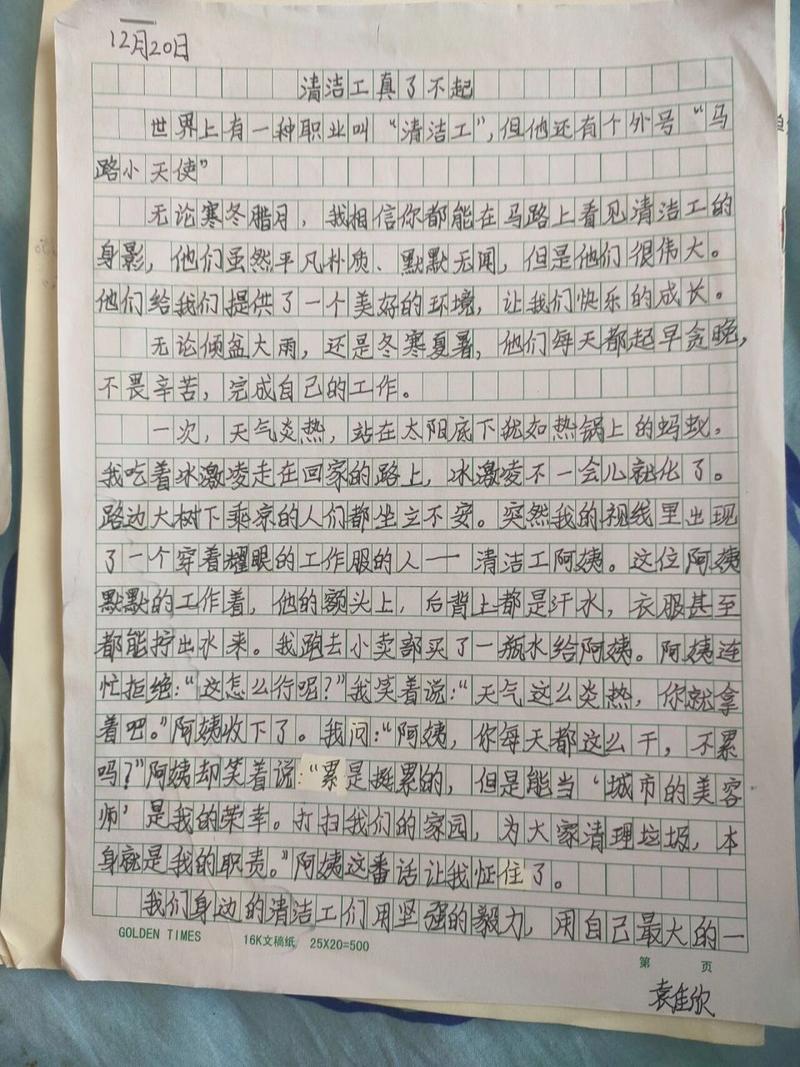 12月20日
清洁工真了不起
世界上有一种职业叫“清洁工”,但他还有个外号“马
路小天使”
无论寒冬腊月,我相信你都能在马路上看见清洁工的
身影,他们虽然平凡朴质、默默无闻,但是他们很伟大。
他们给我们提供了一个美好的环境,让我们快乐的成长。
无论倾盆大雨,还是冬寒夏暑,他们每天都起早贪晚,
不畏辛苦,完成自己的工作。
一次,天气炎热,站在太阳底下犹如热锅上的蚂蚁,
我吃着冰激凌走在回家的路上,冰激凌不一会儿就化了。
路边大树下乘凉的人们都坐立不安。突然我的视线里出现
了一个穿着耀眼的工作服的人——清洁工阿姨。这位阿姨
默默的工作着,他的额头上,后背上都是汗水,衣服甚至
都能拧出水来。我跑去小卖部买了一瓶水给阿姨。阿姨连
忙拒绝:“这怎么行呢?”我笑着说:“天气这么炎热,你就拿
着吧。”阿姨收下了。我问:“阿姨,你每天都这么干,不累
吗?”阿姨却笑着说:“累是挺累的,但是能当‘城市的美容
师’是我的荣幸。打扫我们的家园,为大家清理垃圾,本
身就是我的职责。”阿姨这番话让我怔住了。
我们身边的清洁工们用坚强的毅力,用自己最大的一
GOLDEN TIMES 16K文稿纸 25X20=500
第 页
袁佳欣